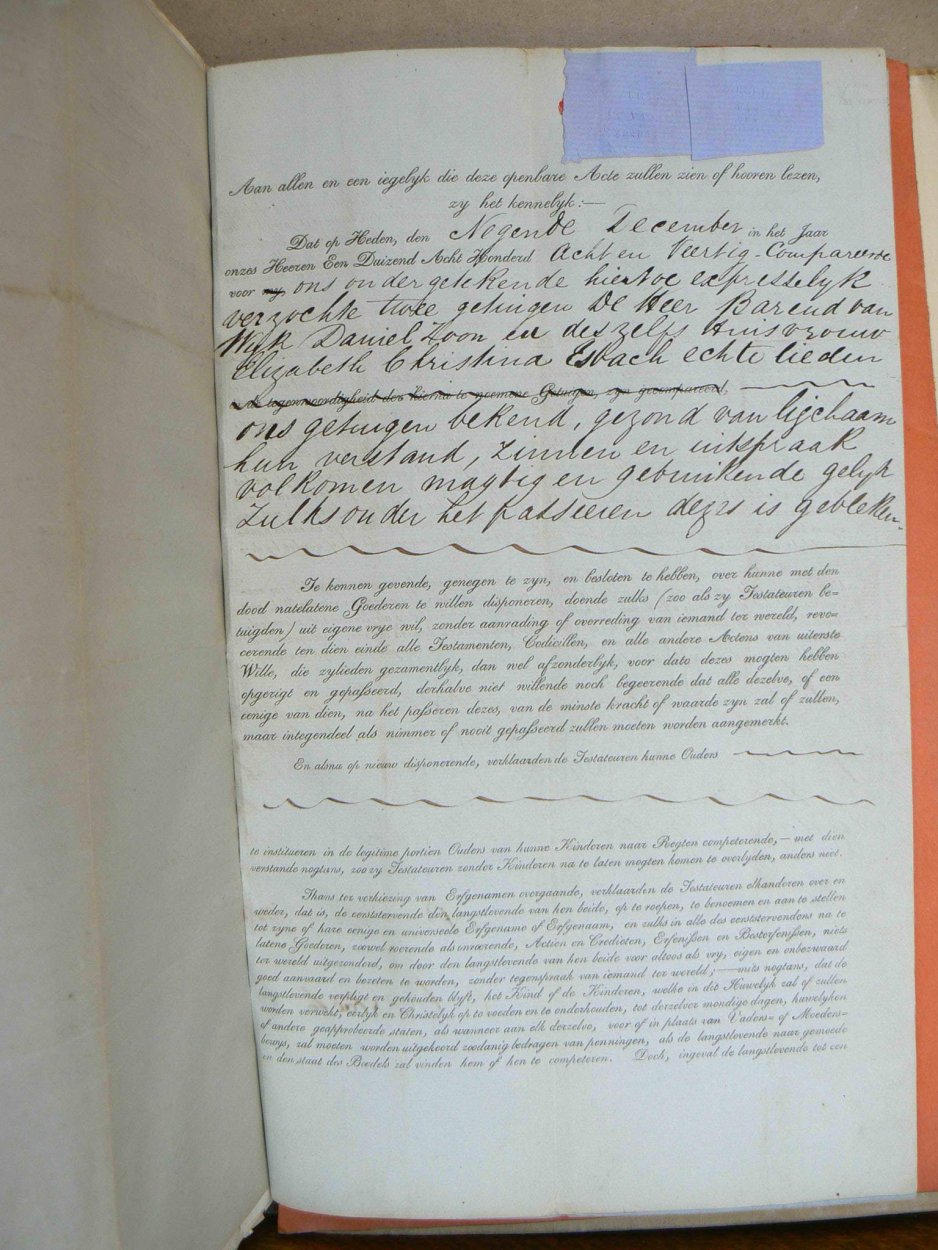 Aan allen en een iegelyk die deze openbare Acte zullen zien of hooren lezen,
zy het kennelyk:—
Dat op Heden, den Negende December in het Jaar
onzes Heeren Een Duizend Acht Honderd Acht en Veertig - Compareerde
voor my, ons ondergetekende hiertoe expresselyk
verzochte twee getuigen De Heer Barend van
Wyk Daniel Zoon en deszelfs Huisvrouw
Elizabeth Christina Esbach echte lieden
in tegenwoordigheid der hierna te noemene Getuigen, zyn gecompareerd,
ons getuigen bekend, gezond van ligchaam
hun verstand, zinnen en uitspraak
volkomen magtig en gebruikende gelyk
zulks onder het passeeren dezes is gebleken.
Te kennen gevende, genegen te zyn, en besloten te hebben, over hunne met den
dood natelatene Goederen te willen disponeren, doende zulks (zoo als zy Testateuren be-
tuigden) uit eigene vrye wil, zonder aanrading of overreding van iemand ter wereld, revo-
cerende ten dien einde alle Testamenten, Codicillen, en alle andere Actens van uiterste
Wille, die zylieden gezamentlyk, dan wel afzonderlyk, voor dato dezes mogten hebben
opgerigt en gepasseerd, derhalve niet willende noch begeerende dat alle dezelve, of een
eenige van dien, na het passeren dezes, van de minste kracht of waarde zyn zal of zullen,
maar integendeel als nimmer of nooit gepasseerd zullen moeten worden aangemerkt.
En alsnu op nieuw disponerende, verklaarden de Testateuren hunne Ouders
te institueren in de legitime portien Ouders van hunne Kinderen naar Regten competerende,—met dien
verstande nogtans, zoo zy Testateuren zonder Kinderen na te laten mogten komen te overlyden, anders niet.
Thans ter verkiezing van Erfgenamen overgaande, verklaarden de Testateuren elkanderen over en
weder, dat is, de eerststervende den langstlevende van hen beide, op te roepen, te benoemen en aan te stellen
tot zyne of hare eenige en universeele Erfgename of Erfgenaam, en zulks in alle des eerststervendens na te
latene Goederen, zoowel roerende als onroerende, Actien en Credieten, Erfenissen en Besterfenissen, niets
ter wereld uitgezonderd, om door den langstlevende van hen beide voor altoos als vry, eigen en onbezwaard
goed aanvaard en bezeten te worden, zonder tegenspraak van iemand ter wereld;—mits nogtans, dat de
langstlevende verpligt en gehouden blyft, het Kind of de Kinderen, welke in dit Huwelyk zal of zullen
worden verwekt, eerlyk en Christelyk op te voeden en te onderhouden, tot derzelver mondige dagen, huwelyken
of andere geapprobeerde staten, als wanneer aan elk derzelve, voor of in plaats van Vaders- of Moeders-
bewys, zal moeten worden uitgekeerd zoodanig bedragen van penningen, als de langstlevende naar gemoede
en den staat des Boedels zal vinden hem of hen te competeren. Doch, ingeval de langstlevende tot een